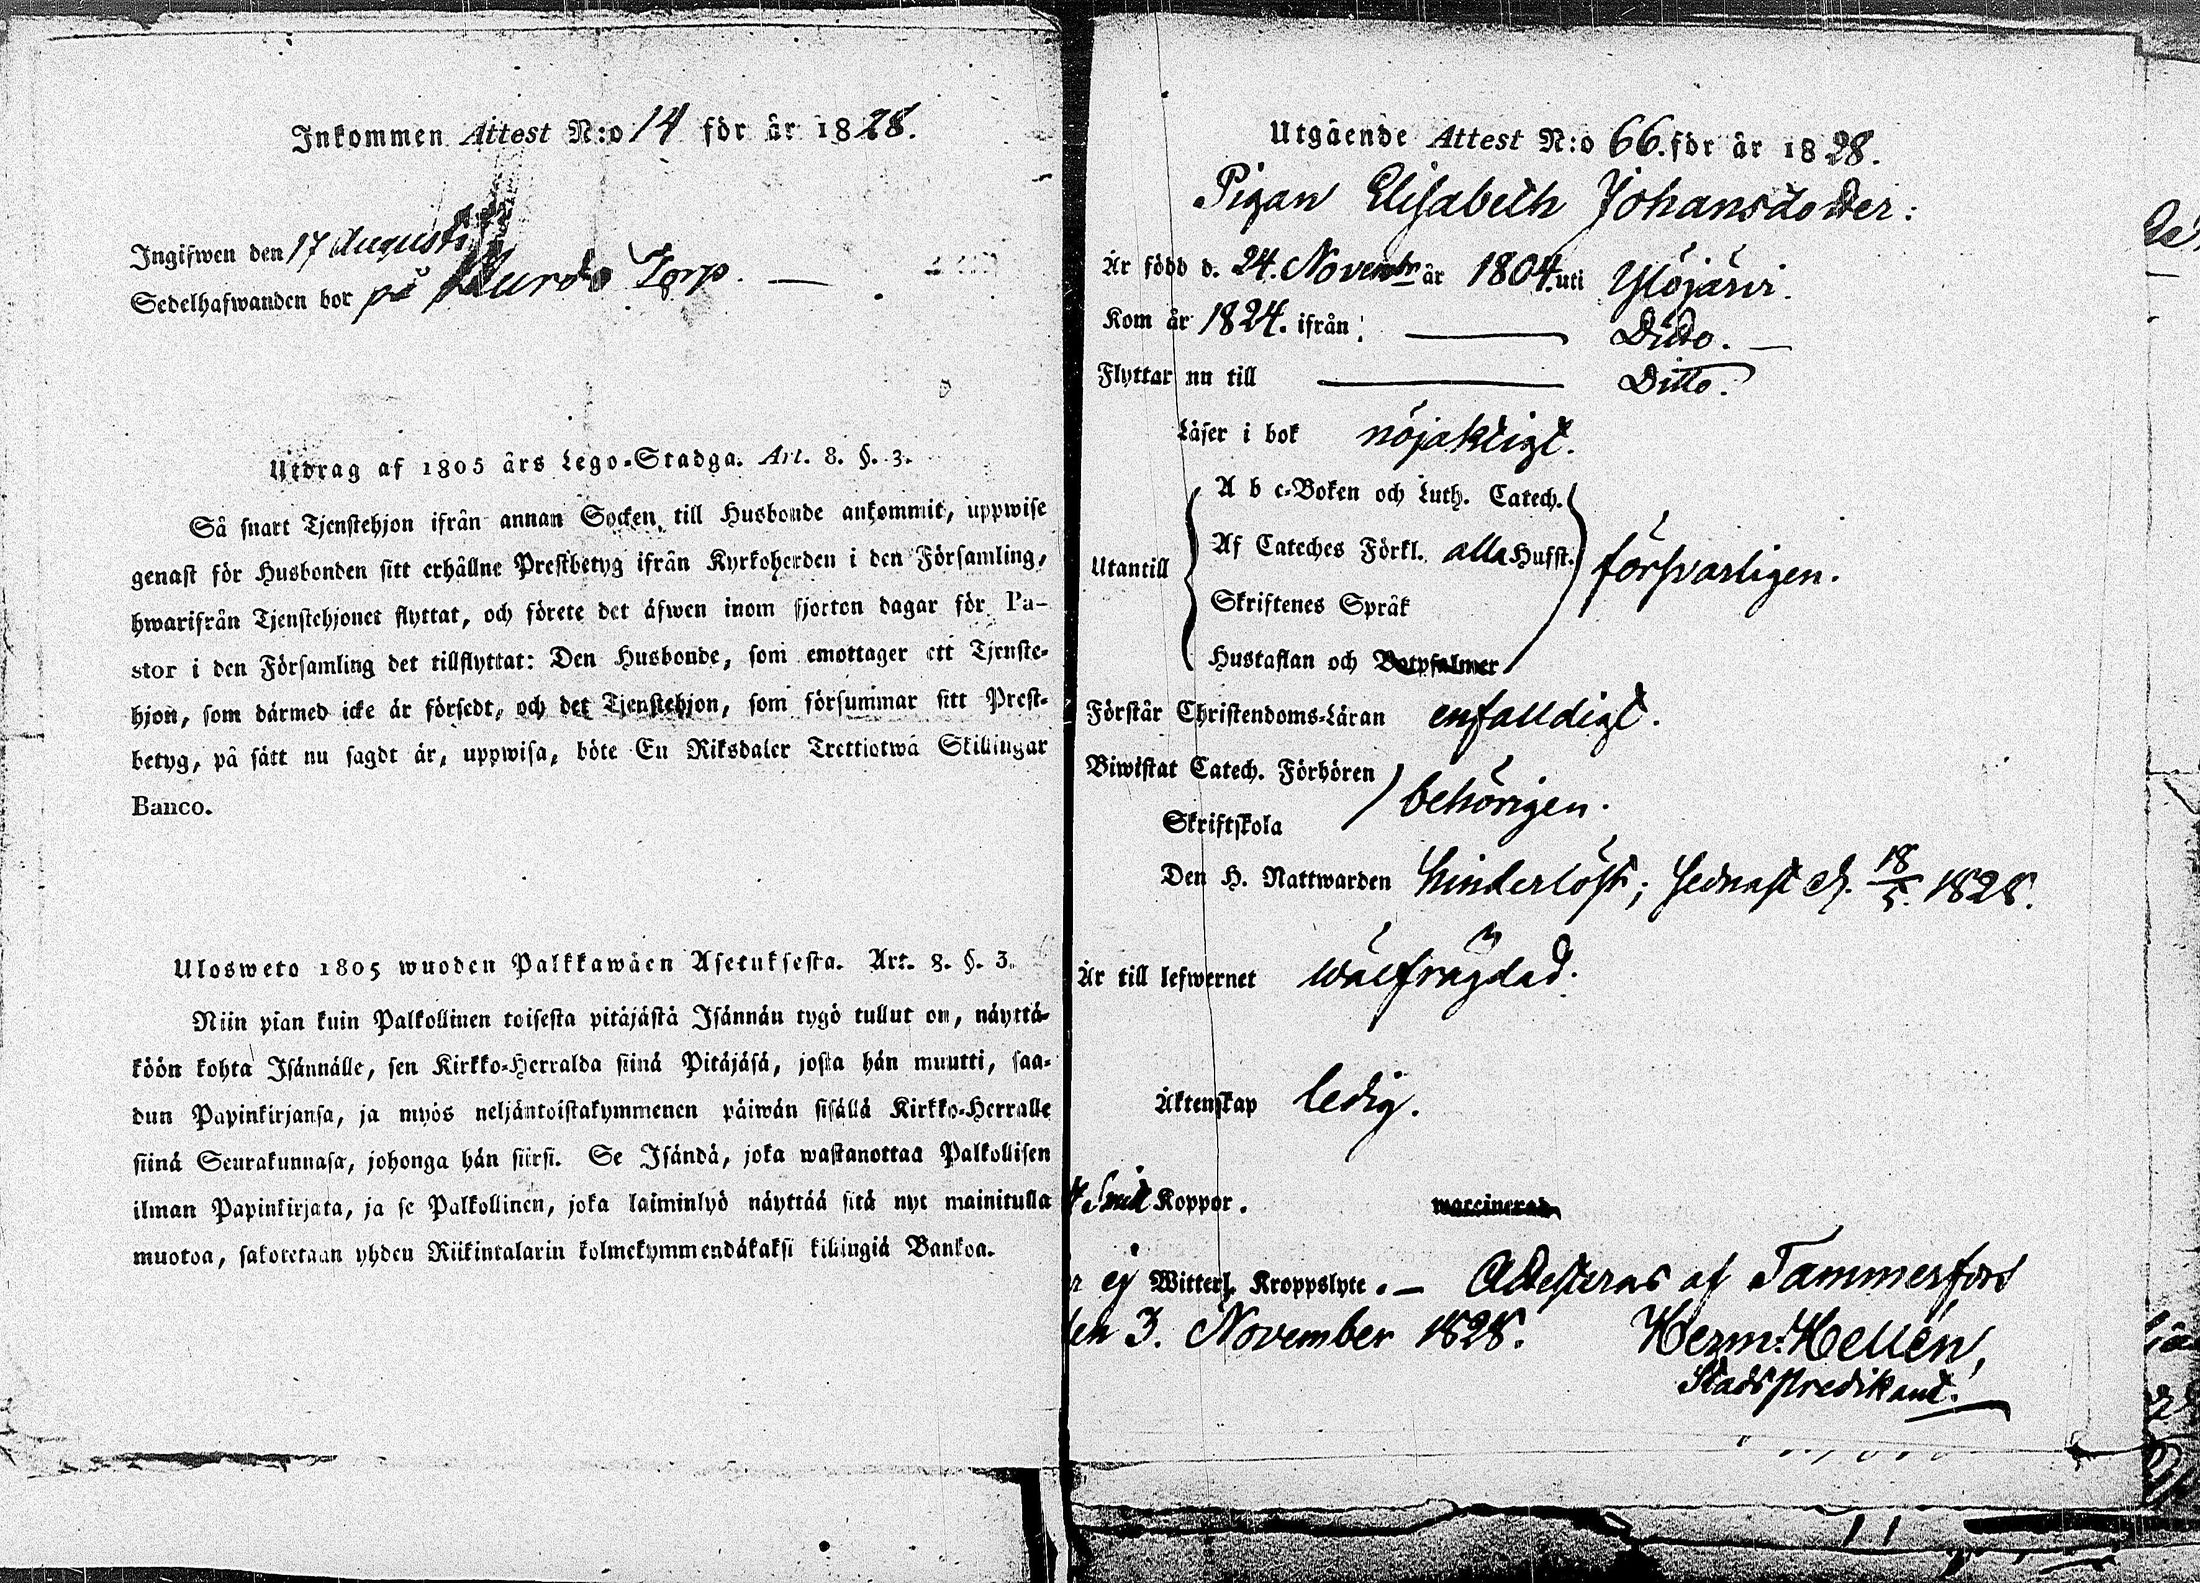 Inkommen Attest N:o 14 för år 1828.
Ingifwen den 17 Augusti
Sedelhafwanden bor på Torp.
Utdrag af 1805 års Lego-Stadga. Art. 8. §. 3.
Så snart Tjenstehjon ifrån annan Socken, till Husbonde ankommit, uppwise
genast för Husbonden sitt erhållne Prestbetyg ifrån Kyrkoherden i den Församling,
hwarifrån Tjenstehjonet flyttat, och förete det äfwen inom fjorton dagar för Pa-
stor i den Församling det tillflyttat: Den Husbonde, som emottager ett Tjenste-
hjon, som därmed icke är försedt, och det Tjenstehjon, som försummar sitt Prest-
betyg, på sätt nu sagdt är, uppwisa, böte En Riksdaler Trettiotwå Skillingar
Banco.
Ulosweto 1805 wuoden Palkkawäen Asetuksesta. Art. 8. §. 3.
Niin pian kuin Palkollinen toisesta pitäjästä Isännän tygö tullut on, näyttä-
köön kohta Isännälle, sen Kirkko-Herralda siinä Pitäjäsä, josta hän muutti, saa-
dun Papinkirjansa, ja myös neljäntoistakymmenen päiwän sisällä Kirkko-Herralle
siinä Seurakunnasa, johonga hän siirsi. Se Isändä, joka wastanottaa Palkollisen
ilman Papinkirjata, ja se Palkollinen, joka laiminlyö näyttää sitä nyt mainitulla
muotoa, sakotetaan yhden Riikintalarin kolmekymmendäkaksi killingiä Bankoa.
Utgående Attest N:o 66. för år 1828.
Pigan Elisabeth Johansdotter:
Är född d. 24. Novembr år 1804. uti Ylöjärvi.
Kom år 1824. ifrån: Ditto.
Flyttar nu till Ditto.
Läser i bok nöjaktigt.
A b c-Boken och Luth. Catech.
Utantill Af Cateches Förkl. alla Hufst. försvarligen.
Skriftenes Språk
Hustaflan och Botpsalmer
Förstår Christendoms-Läran enfalldigt.
Biwistat Catech. Förhören behörigen.
Skriftskola
Den H. Nattwarden hinderlöst; sednast d. 18/5. 1828.
Är till lefwernet wälfrägdad.
Äktenskap ledig.
Koppor. waccinerad
ej Witterl. Kroppslyte. — Attesteras af Tammerfors
den 3. November 1828. Herm: Hellén,
Stadspredikant.